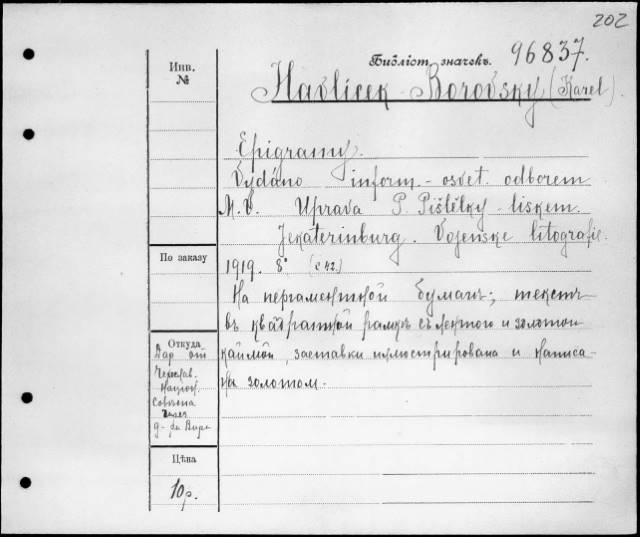 202
Инв. №
Библіот. значекъ. 96837.
Havlicek Borovsky (Karel)
Epigramy.
Vydáno inform.-osvet. odborem
M. V. Uprava P. Pištělky - liskem.
Jekaterinburg. Vojenske litografie.
По заказу
1919. 8° (с 42.)
На пергаментной бумагѣ; текстъ
въ квадратной рамкѣ съ и золотой
каймой, заставки иллюстрирована и написа-
на золотом.
Откуда
Дар от
Чехослав.
Национ.
Совѣта
через
д-ра
Цѣна
10 р.